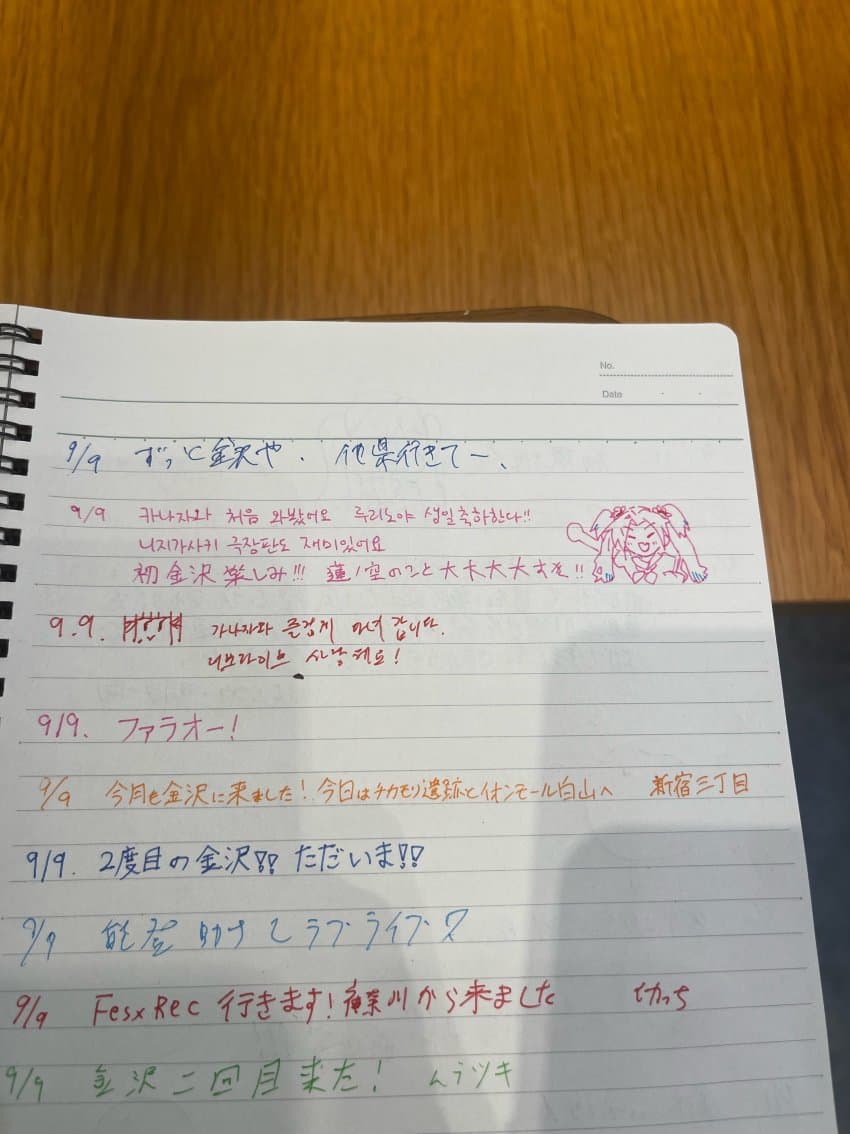 No.
Date
9/9 ずっと金沢や. 他県行きてー.
9/9 카나자와 처음 와봤어요 루리노야 생일축하한다!!
니지가사키 극장판도 재미있어요
初金沢楽しみ!!! 蓮ノ空のこと大大大大すき!!
9.9. 가나자와 즐겁게 다녀 갑니다.
러브라이브 사랑해요!
9/9. ファラオー!
9/9 今月も金沢に来ました! 今日はチカモリ遺跡とイオンモール白山へ 新宿三丁目
9/9. 2度目の金沢!! ただいま!!
9/9 能登 助け ラブライブ
9/9 Fes×Rec 行きます! 神奈川から来ました
9/9 金沢二回目来た! ムラツキ